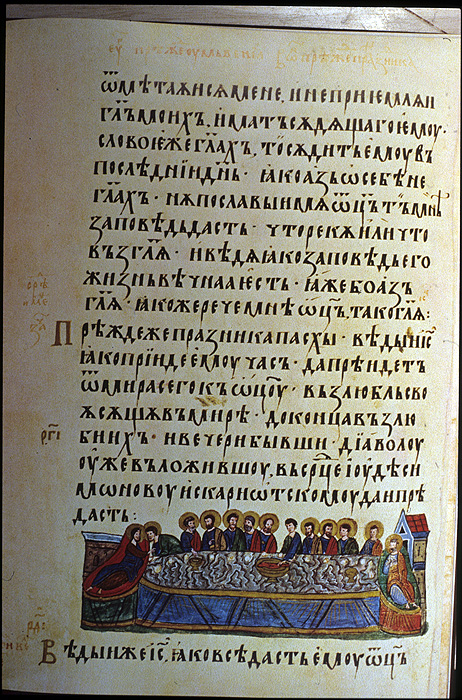 ѿмѣтаѧисѧ мене, и не приемлѧи
гл҃ъ моихъ, иматъ сѫдѧщаго емоу·
слово еже гл҃ахъ, то сѫдитъ емоу въ
послѣднїи дн҃ь· ꙗко азъ ѡ себѣ не
гл҃ахъ· нѫ пославыи мѧ ѿц҃ъ тъ мнѣ
заповѣдь дастъ· что рекѫ или что
възгл҃ѧ· и вѣдѧ ꙗко заповѣдь его
жизнь вѣчнаа естъ· ꙗже бо азъ
гл҃ѧ· ꙗкоже рече мнѣ ѿц҃ъ, тако гл҃ѧ:
Прѣжде же празника пасхы· вѣды іс҃
ꙗко прїиде емоу часъ· да прѣидетъ
ѿ мира сего къ ѿц҃оу· възлюбль сво
ѧ сѫщѫѧ въ мирѣ· до конца възлю
би ихъ· и вечери бывши· дїаволоу
оуже въложившоу въ ср҃це іоудѣ си
мѡновоу искариѡтскомоу да и прѣ
дастъ:
Вѣды же іс҃, ꙗко всѣ дастъ емоу ѿц҃ъ